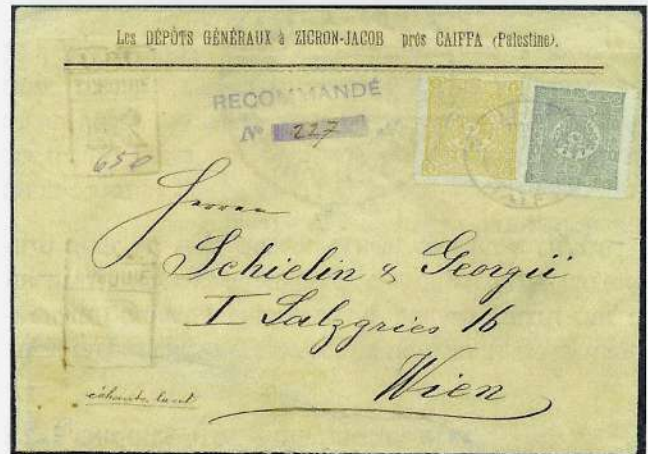 Les DÉPÔTS GÉNÉRAUX à ZICRON-JACOB près CAIFFA (Palestine).
RECOMMANDÉ
Nº 227
650
Herren
Schielin & Georgii
I Salzgries 16
Wien